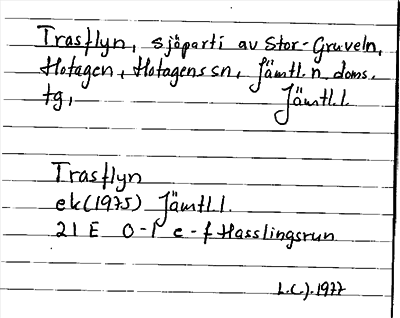 Trasflyn, sjöparti av Stor-Gruveln,
Hotagen, Hotagens sn, Jämtl. n. doms.
tg, Jämtl.l.
Trasflyn
ek (1975) Jämtl.l.
21 E 0-1 e-f Hasslingsrun
L.C.J. 1977